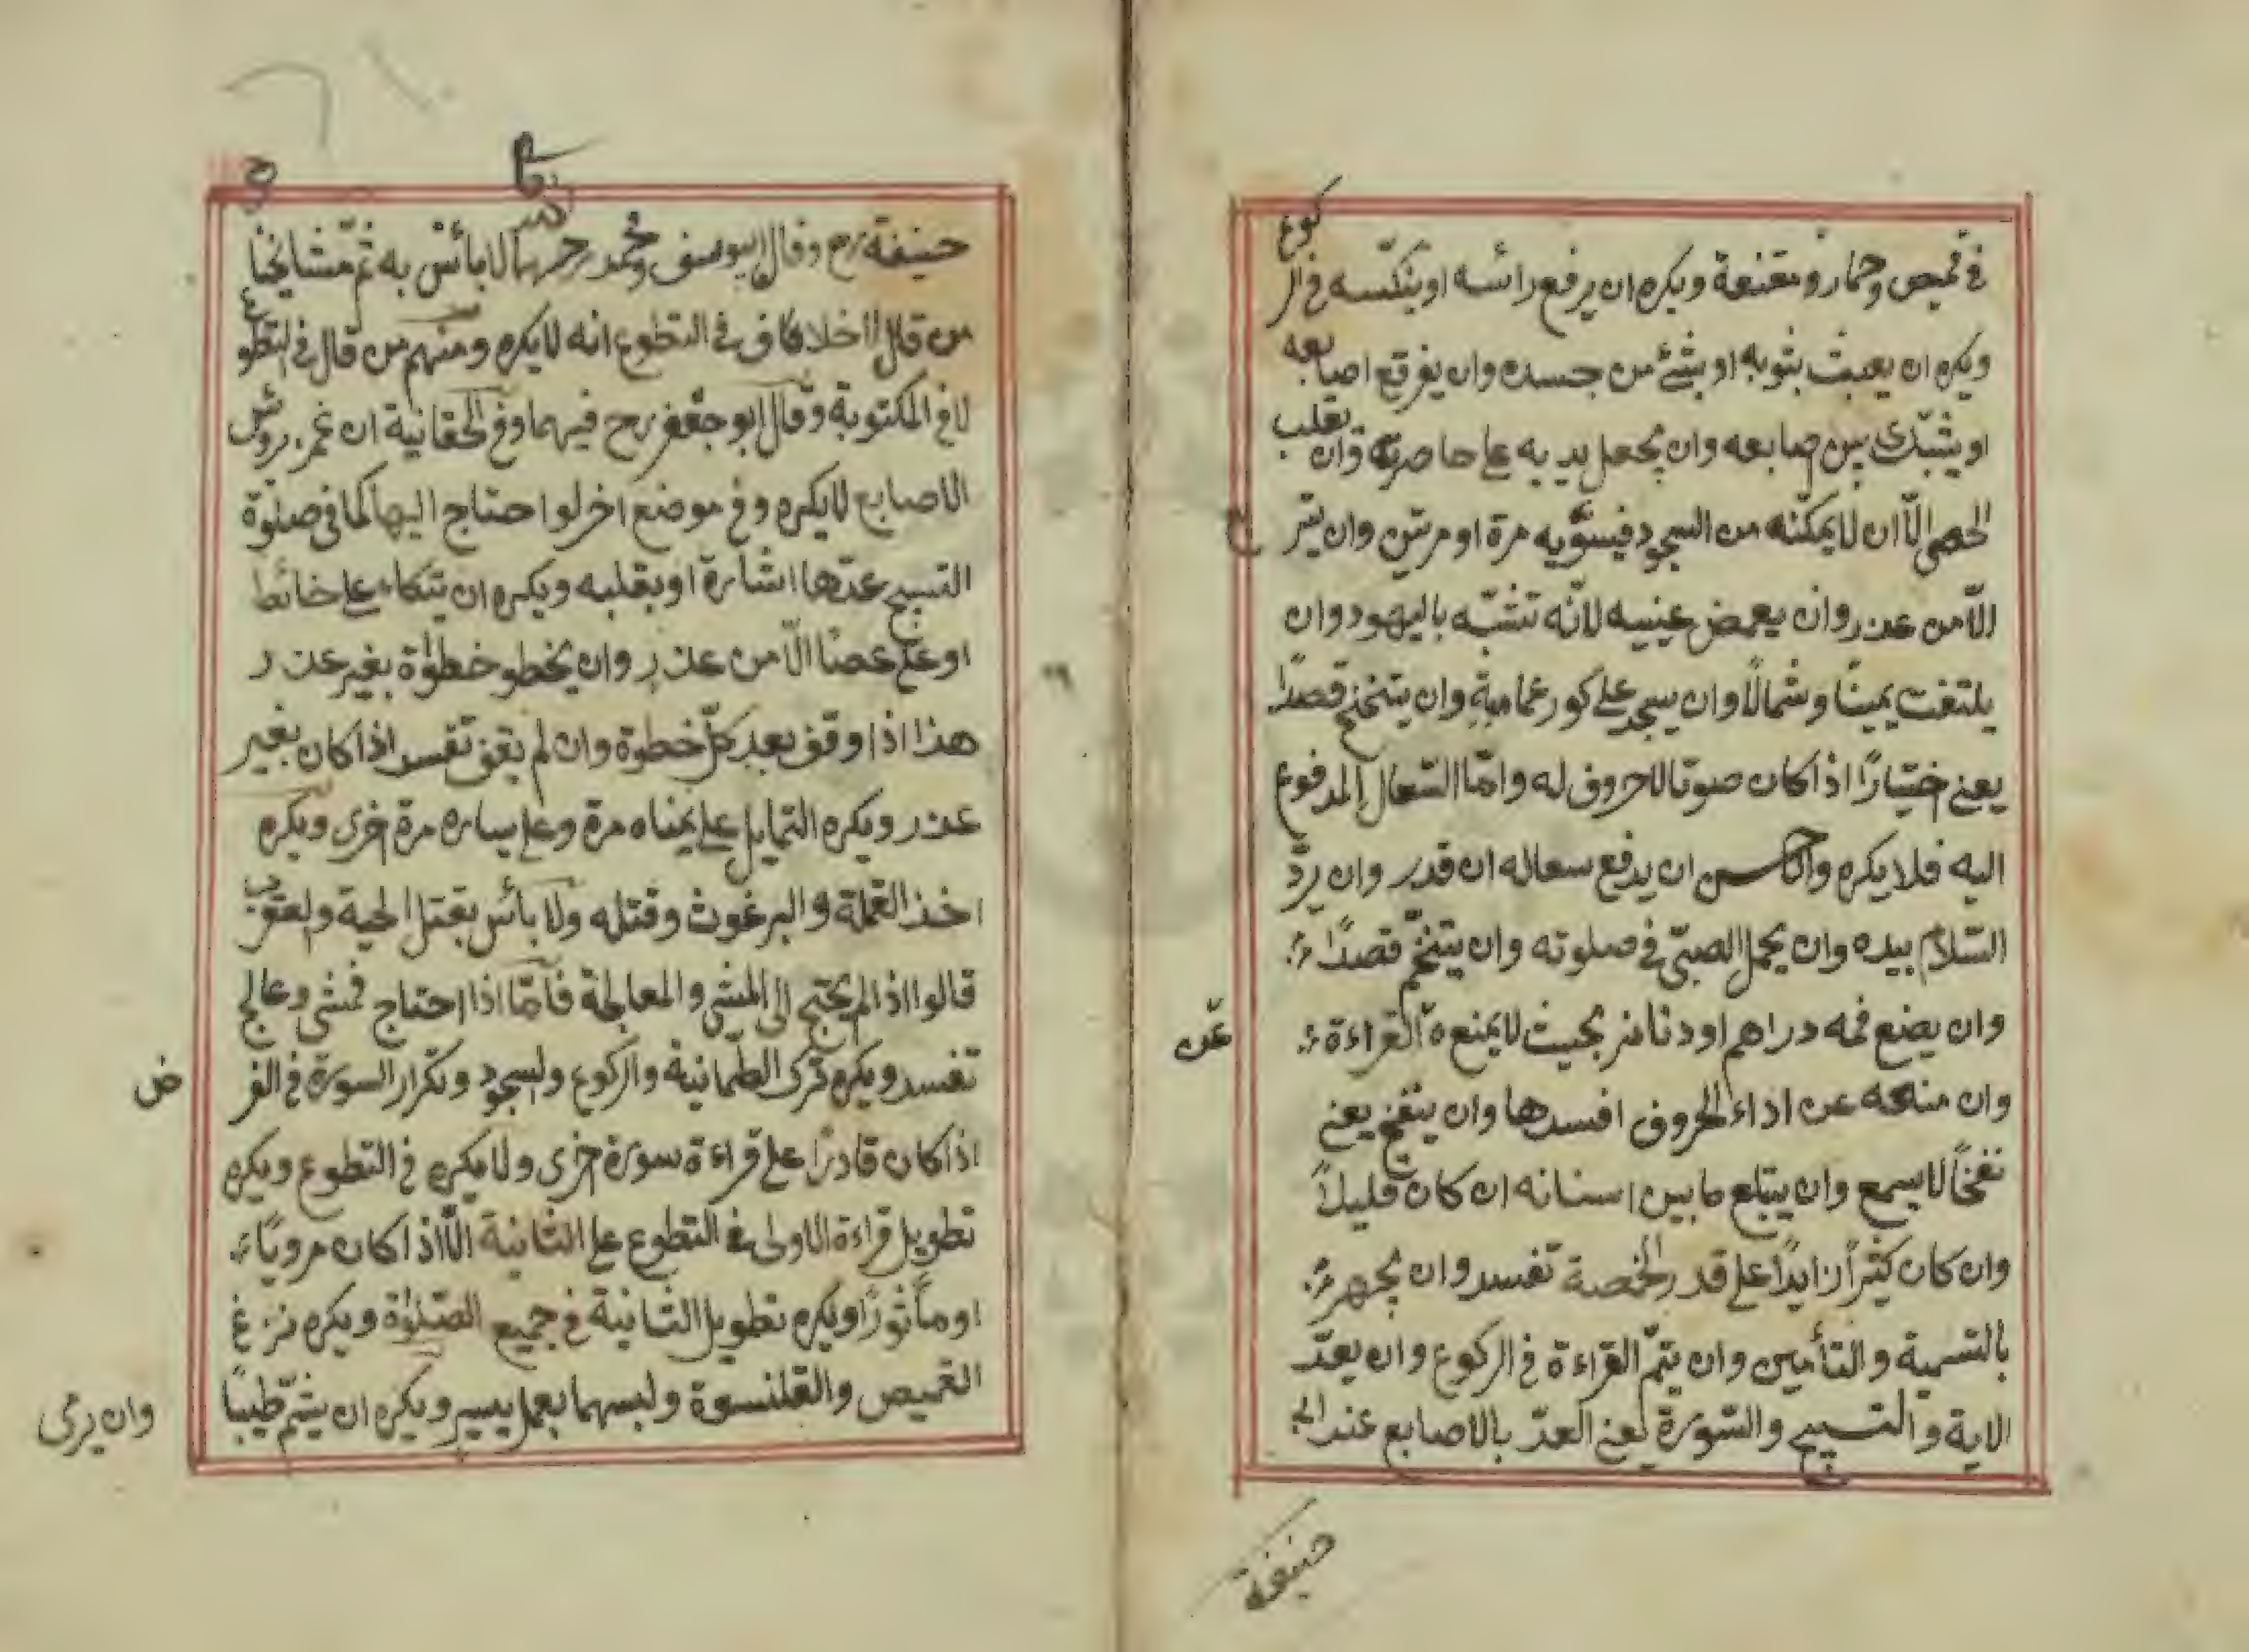 في قميص وخمار ومقنعة ويكره ان يرفع رائسه او ينكسه في الركوع
ويكره ان يعبث بثوبه او بشئ من جسده وان يفرقع اصابعه
او يشبك بين صابعه وان يجعل يديه على حاصرته وان يقلب
الحصى الّا ان لا يمكنه من السجود فيسوّيه مرة او مرتين وان يتربع
الّا من عذر وان يغمض عينيه لانّه تشبّه باليهود وان
يلتفت يمينًا وشمالًا وان يسجد على كور عمامته وان يتنحنح قصدًا
يعني اختيارًا اذا كان صوتا لا حروف له وامّا السّعال المدفوع
اليه فلا يكره والاحسن ان يدفع سعاله ان قدر وان يردّ
السّلام بيده وان يحمل الصبيّ في صلوته وان يتنخّم قصدًا
وان يضع فمه دراهم او دنانير بحيث لا يمنعه عن القراءة
وان منعه عن اداء الحروف افسدها وان ينفخ يعني
نفخًا لا يسمع وان يبتلع ما بين اسنانه ان كان قليلاً
وان كان كثيرًا زايدًا على قدر الحمصة تفسد وان يجهر
بالتسمية والتأمين وان يتمّ القراءة في الركوع وان يعدّ
الاية والتسبيح والسّورة يعني العدّ بالاصابع عند ابي
حنيفة
حنيفة رح وقال ابو يوسف ومحمد رحمهما لا بائس به ثم مشايخنا
من قال لا خلاف في التطوع انه لا يكره ومنهم من قال في التطوع
لا في المكتوبة وقال ابو جعفر رح فيهما وفي الحقانية ان غمز روئس
الاصابع لا يكره وفي موضع اخر لو احتاج اليها كما في صلوة
التسبيح عدّها اشارة او بقلبه ويكره ان يتكاء على حائط
او على عصًا الّا من عذر وان يخطو خطوة بغير عذر
هذا اذا وقف بعد كلّ خطوة وان لم يقف تفسد اذا كان بغير
عذر ويكره التمايل على يمناه مرة وعلى يساره مرة اخرى ويكره
اخذ القملة والبرغوث وقتله ولا بأس بقتل الحية والعقرب
قالوا اذا لم يحتج الى المشي والمعالجة فأمّا اذا احتاج فمشى وعالج
تفسد ويكره ترك الطّمانينة والركوع والسجود وتكرار السورة في الفرض
اذا كان قادرًا على قراءة سورة اخرى ولا يكره في التطوع ويكره
تطويل قراءة الاولى في التطوع على الثانية الّا اذا كان مرويًا
او مأثورًا ويكره تطويل الثانية في جميع الصّلوة ويكره نزع
القميص والقلنسوة ولبسهما بعمل يسير ويكره ان يشمّ طيبًا
وان يرمى